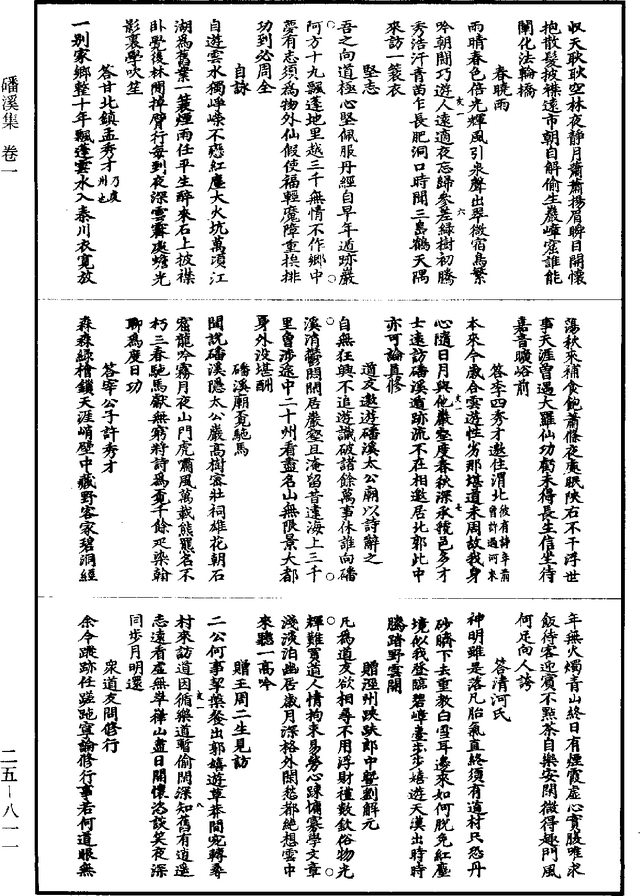 収天耿耿空林夜靜月蕭蕭揚眉瞬目開懷
抱散髮披襟遠市朝自解偷生巖嶂窟誰能
闡化法輪橋
春曉雨
雨晴春色倍光輝風引泉聲出翠微宿鳥繁
吟朝聞巧遊人遠適夜忘歸參差綠樹初騰
秀浩汗青苗乍長肥洞口時聞三島鶴天隅
來訪一蓑衣
堅志
吾之向道極心堅佩服丹經自早年遁跡巖
阿方十九飄蓬地里越三千無情不作鄉中
夢有志須為物外仙假使福輕魔障重挨排
功到必周全
自詠
自遊雲水獨崢嶸不戀紅塵大火坑萬頃江
湖為舊業一蓑煙雨任平生醉來石上披襟
臥覺後林間掉臂行每到夜深雲霽處蟾光
影裏學吹笙
答甘北鎮孟秀才乃虔州也
一別家鄉整十年飄蓬雲水入秦川衣寬放
蕩秋來補食飽蕭條夜處眠陝右不干浮世
事天涯曾遇大羅仙功虧未得長生信坐待
嘉音曠峪前
答李四秀才邀住渭北彼有詩年前曾許過河來
本來今歲合雲遊性劣那堪道未周故我身
心隨日月與他巖壑度春秋深承親邑多才
士遠訪磻溪遁跡流不在相邀居北郭此中
亦可論真修
道友邀遊磻溪太公廟以詩辭之
自無狂興不追遊識破諸餘萬事休誰向磻
溪消鬱悶閑居巖壑且淹留昔違海上三千
里曾涉途中二十州看盡名山無限景大都
身外沒堪酬
磻溪廟覓馳馬
聞說磻溪隱太公巖高樹密壯祠雄花朝石
窟龍吟霧月夜山門虎嘯風萬載熊羆名不
朽三春馳馬獻無窮料詩為覓千餘疋染翰
聊為度日功
答宰公子許秀才
森森綠檜鎖天涯峭壁中藏野客家碧洞經
年無火燭青山終日有煙霞虛心實腹唯求
飯待客迎賓不點茶自樂安閑微得趣門風
何足向人誇
答清河氏
神明雖是落凡胎氣直終須有道材只恐丹
砂臍下去重教白雪耳邊來如何脫免紅塵
境似我登臨碧嶂臺步步嬉遊天漢出時時
騰踏野雲開
贈涇州郎中暨劉解元
凡為道友欲相尋不用浮財禮數欽俗物光
輝難買道人情拘束易勞心踈慵寡學文章
淺淡泊幽居歲月深格外閑愁都絕想雲中
來聽一高吟
贈王周二生見訪
二公何事出郭嬉遊草莽間宛轉尋
村來訪道因循樂道暫偷閑深知舊有逍遙
志遠看虛無華山盡日開懷恣談笑夜深
同步月明還
眾道友問修行
余今蹤跡任蹉跎寧論修行事若何道眼無
磻溪集 卷一
二五—八一一